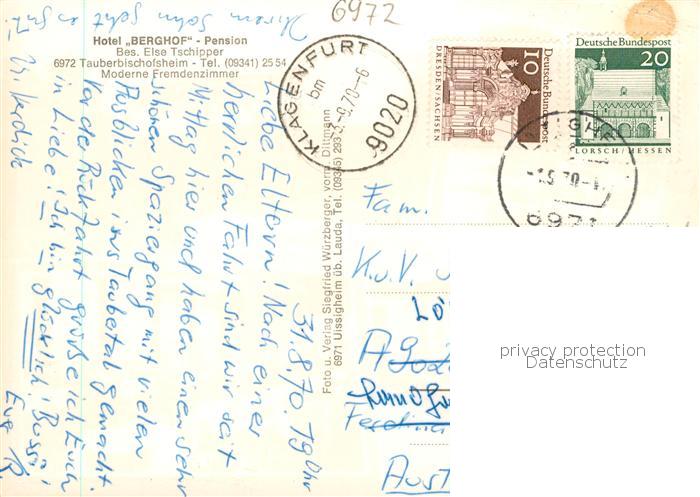 6972
Ihrem Sohn geht es gut!
Hotel „BERGHOF" - Pension
Bes. Else Tschipper
6972 Tauberbischofsheim - Tel. (09341) 25 54
Moderne Fremdenzimmer
31.8.70. 19 Uhr
Liebe Eltern! Nach einer
herrlichen Fahrt sind wir seit
Mittag hier und haben einen sehr
schönen Spaziergang mit vielen
Ausblicken ins Taubertal gemacht.
Vor der Rückfahrt grüße ich Euch
in Liebe! Ich bin glücklich! Bussi!
Foto u. Verlag Siegfried Würzberger, vorm. Dittmann
6971 Uissigheim üb. Lauda, Tel. (09345)
KLAGENFURT
bm
-6
9020
Deutsche Bundespost
10
DRESDEN/SACHSEN
Deutsche Bundespost
20
LORSCH/HESSEN
6971
Fam.
K.u.V.
LÖ
Ferdin
Aust
privacy protection
Datenschutz